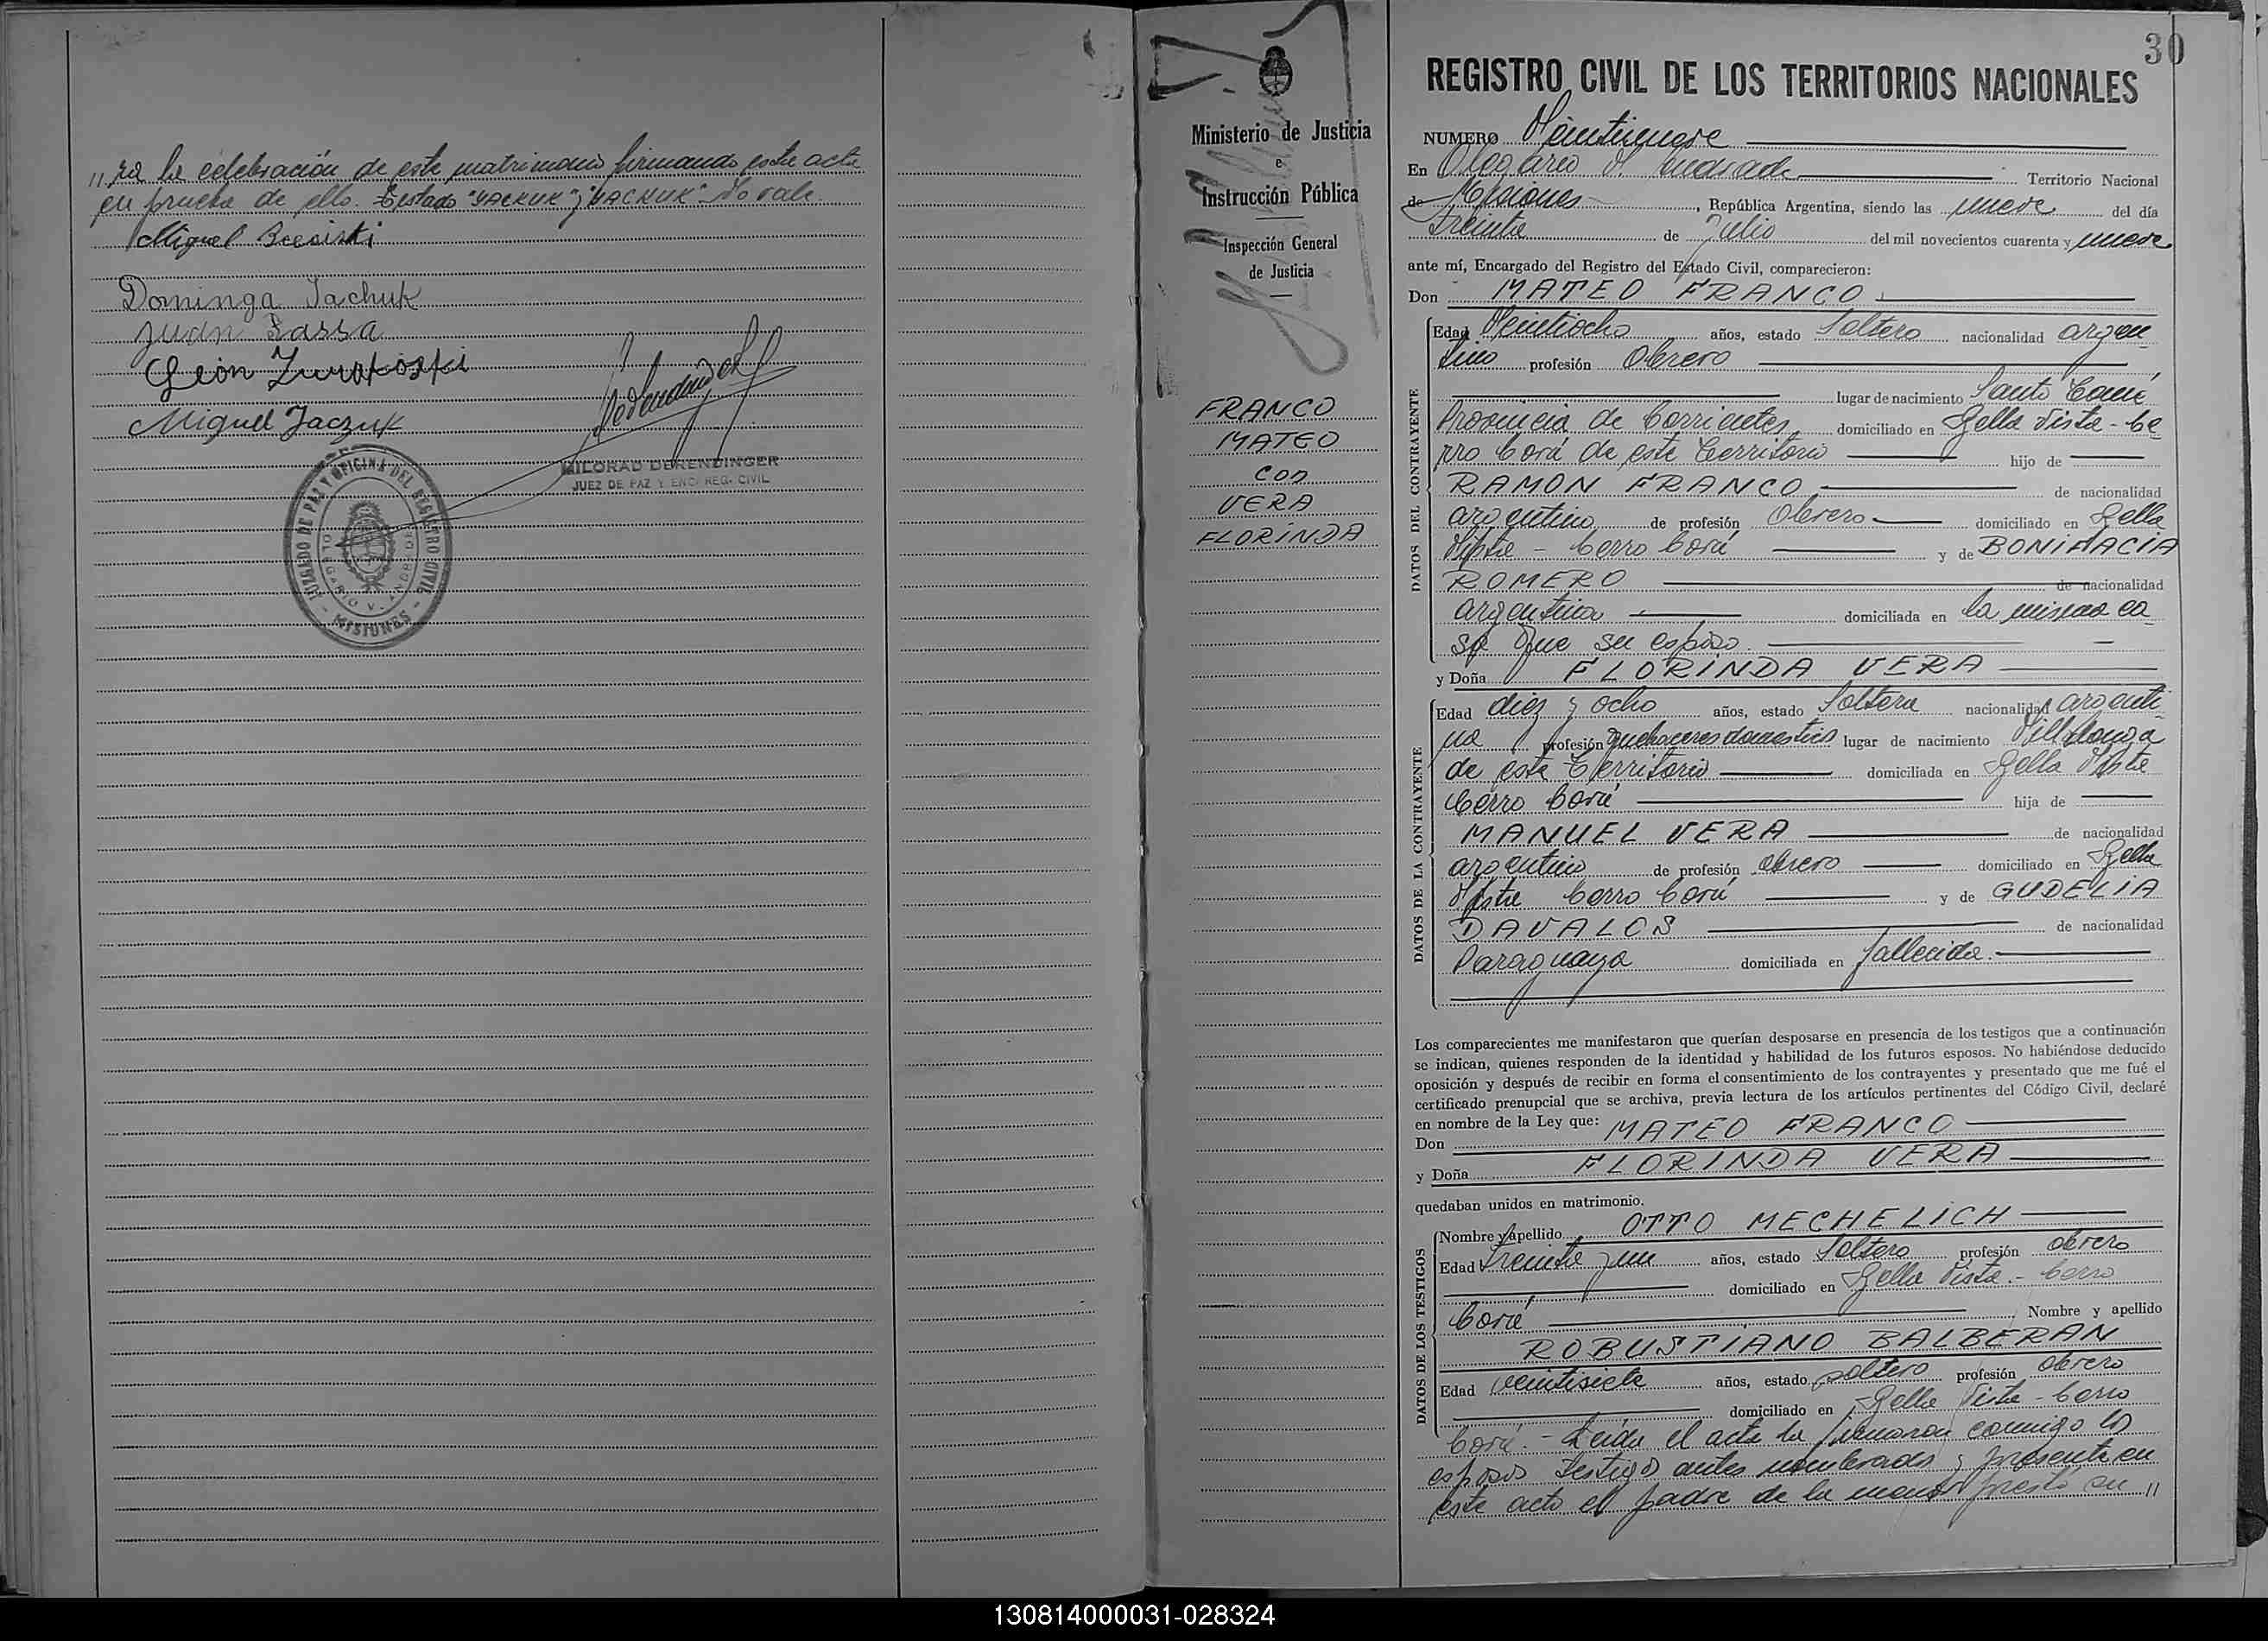 ra la celebración de este matrimonio firmando este acta
en prueba de ello. Testado "YACKUK" y "YACKUK" No vale.
Miguel
Dominga Jachuk
Juan Sassa
León
Miguel Jaczuk
MILORAD DERENDINGER
JUEZ DE PAZ Y ENC. REG. CIVIL
JUZGADO DE PAZ Y OFICINA DEL REGISTRO CIVIL
OLEGARIO V. ANDRADE
- MISIONES -
Ministerio de Justicia
e
Instrucción Pública
Inspección General
de Justicia
FRANCO
MATEO
con
VERA
FLORINDA
30
REGISTRO CIVIL DE LOS TERRITORIOS NACIONALES
NUMERO Veintinueve
En Olegario V. Andrade Territorio Nacional
de Misiones, República Argentina, siendo las nueve del día
treinta de Julio del mil novecientos cuarenta y nueve
ante mí, Encargado del Registro del Estado Civil, comparecieron:
Don MATEO FRANCO
DATOS DEL CONTRAYENTE
Edad Veintiocho años, estado Soltero nacionalidad argen
tino profesión Obrero
lugar de nacimiento Santo Tomé,
Provincia de Corrientes domiciliado en Bella Vista - Ce
rro Corá de este Territorio hijo de
RAMON FRANCO de nacionalidad
argentino de profesión Obrero domiciliado en Bella
Vista - Cerro Corá y de BONIFACIA
ROMERO de nacionalidad
argentina domiciliada en la misma ca
sa que su esposo.
y Doña FLORINDA VERA
DATOS DE LA CONTRAYENTE
Edad diez y ocho años, estado Soltera nacionalidad argenti
na profesión quehaceres domesticos lugar de nacimiento
de este Territorio domiciliada en Bella Vista
Cerro Corá hija de
MANUEL VERA de nacionalidad
argentino de profesión obrero domiciliado en Bella
Vista Cerro Corá y de GUDELIA
DAVALOS de nacionalidad
Paraguaya domiciliada en fallecida.
Los comparecientes me manifestaron que querían desposarse en presencia de los testigos que a continuación
se indican, quienes responden de la identidad y habilidad de los futuros esposos. No habiéndose deducido
oposición y después de recibir en forma el consentimiento de los contrayentes y presentado que me fué el
certificado prenupcial que se archiva, previa lectura de los artículos pertinentes del Código Civil, declaré
en nombre de la Ley que:
Don MATEO FRANCO
y Doña FLORINDA VERA
quedaban unidos en matrimonio.
DATOS DE LOS TESTIGOS
Nombre y apellido OTTO MECHELICH
Edad treinta y un años, estado Soltero profesión obrero
domiciliado en Bella Vista - Cerro
Corá Nombre y apellido
ROBUSTIANO BALBERAN
Edad veintisiete años, estado soltero profesión obrero
domiciliado en Bella Vista - Cerro
Corá. - Leída el acta la firmaron conmigo los
esposos testigos antes nombrados y presente en
este acto el padre de la menor prestó su "
130814000031-028324